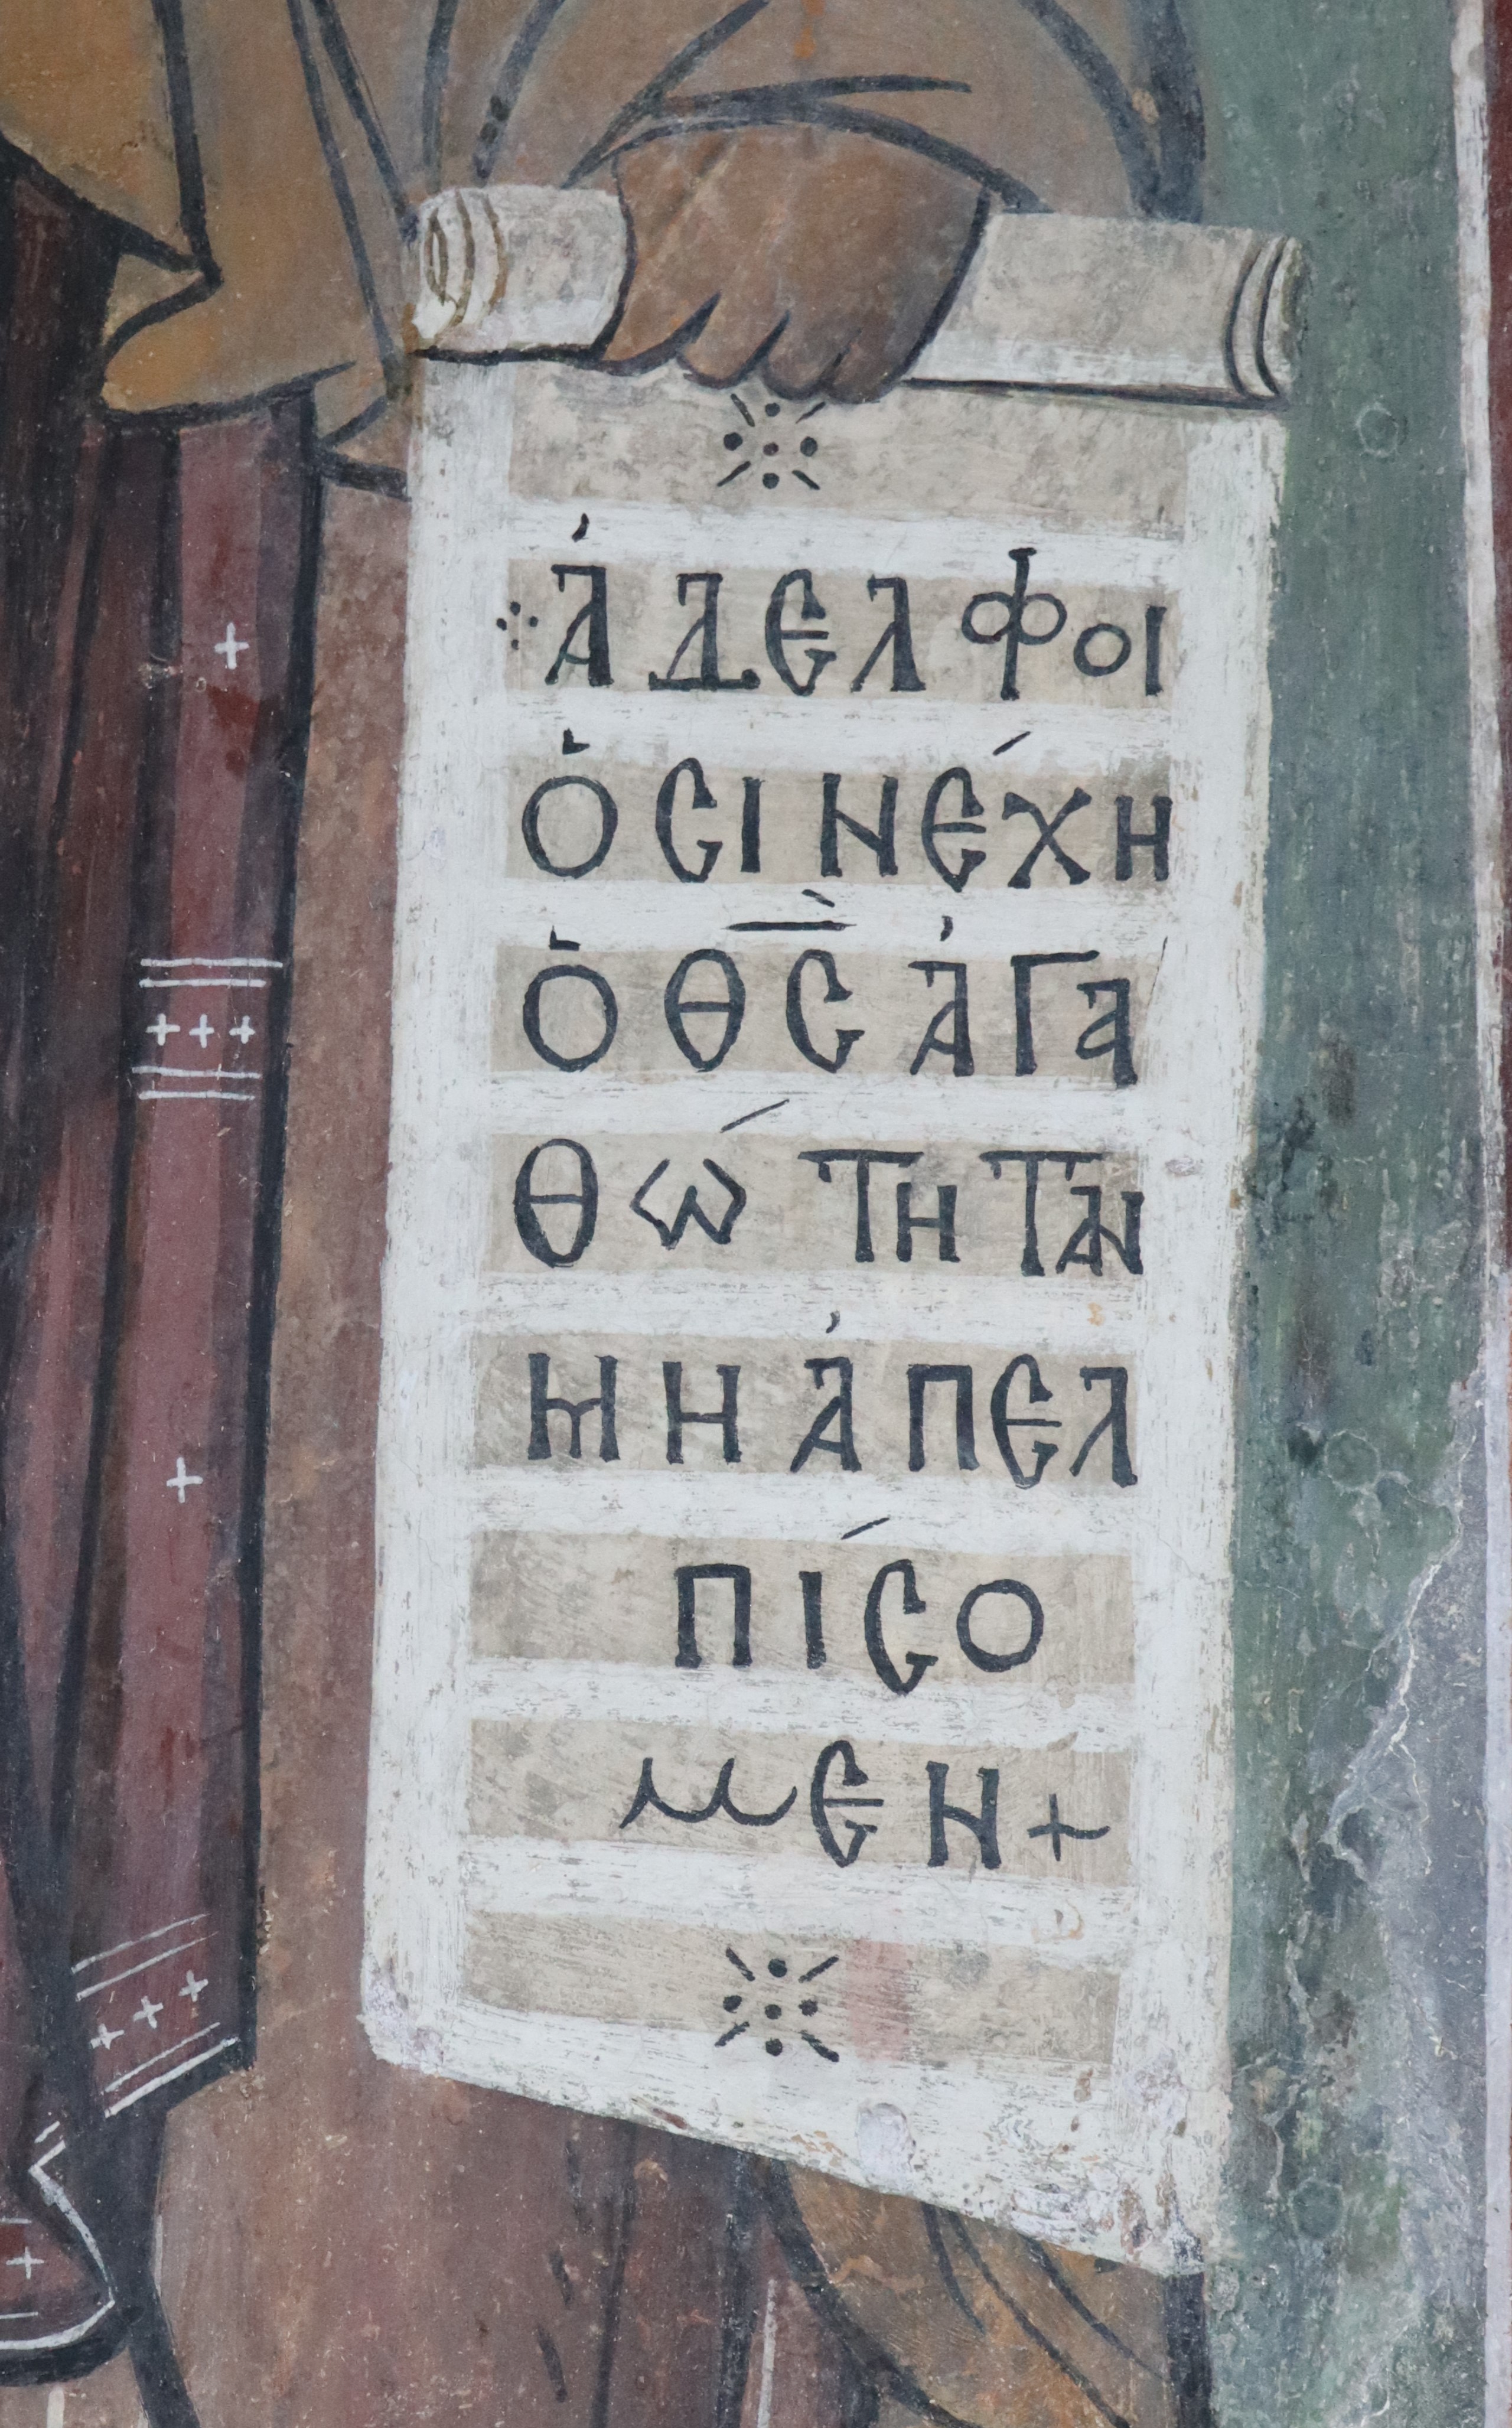 ἈΔΕΛΦΟΙ
ὉCΙΝΈΧΗ
ὉΘ̅C̅̀ἈΓΑ
ΘΏΤΗΤΑΝ
ΜΗἈΠΕΛ
ΠΊCΟ
ΜΕΝ+